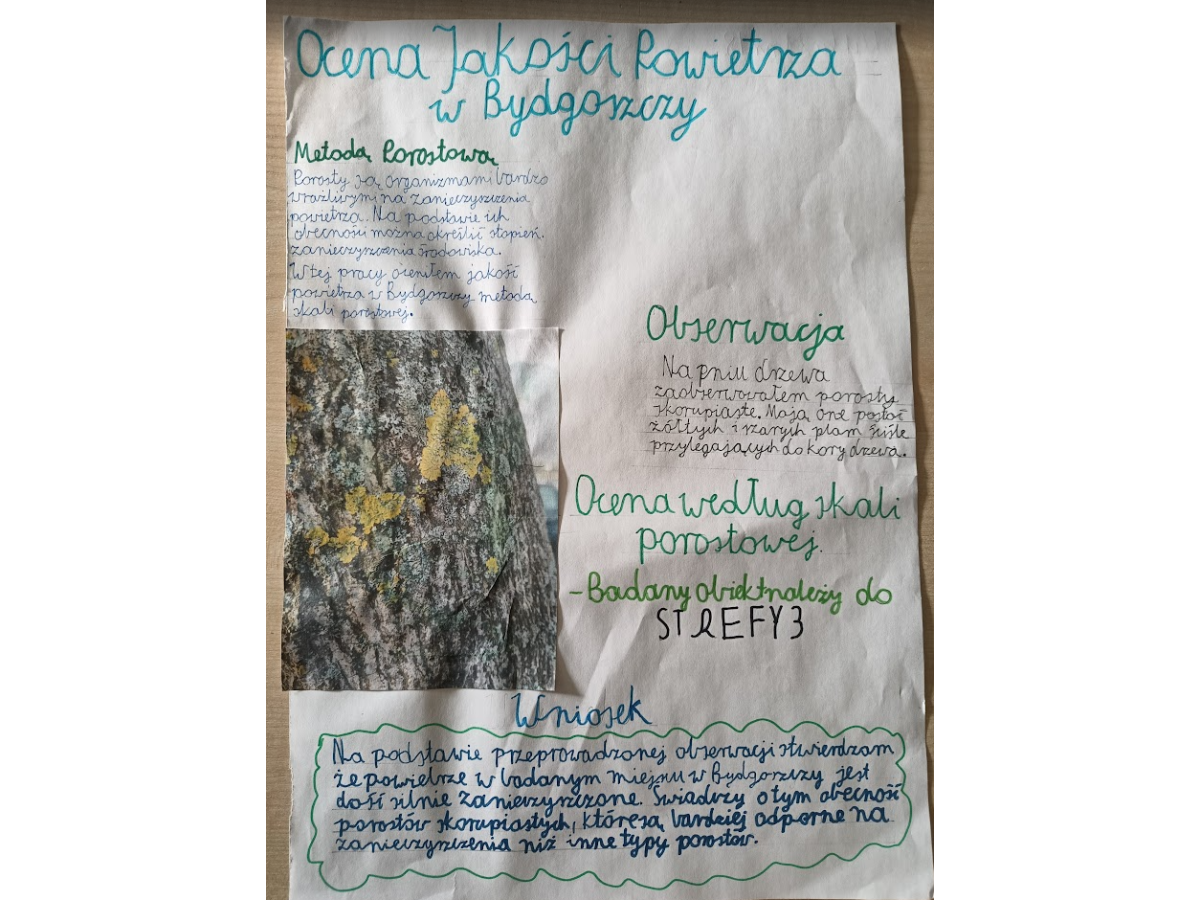 Ocena Jakości Powietrza
w Bydgoszczy
Metoda Porostowa
Porosty są organizmami bardzo
wrażliwymi na zanieczyszczenia
powietrza. Na podstawie ich
obecności można określić stopień
zanieczyszczenia środowiska.
W tej pracy oceniłem jakość
powietrza w Bydgoszczy metodą
skali porostowej.
Obserwacja
Na pniu drzewa
zaobserwowałem porosty
skorupiaste. Mają one postać
żółtych i szarych plam ściśle
przylegających do kory drzewa.
Ocena według skali
porostowej.
- Badany obiekt należy do
STREFY 3
Wniosek
Na podstawie przeprowadzonej obserwacji stwierdzam
że powietrze w badanym miejscu w Bydgoszczy jest
dość silnie zanieczyszczone. Świadczy o tym obecność
porostów skorupiastych, które są bardziej odporne na
zanieczyszczenia niż inne typy porostów.